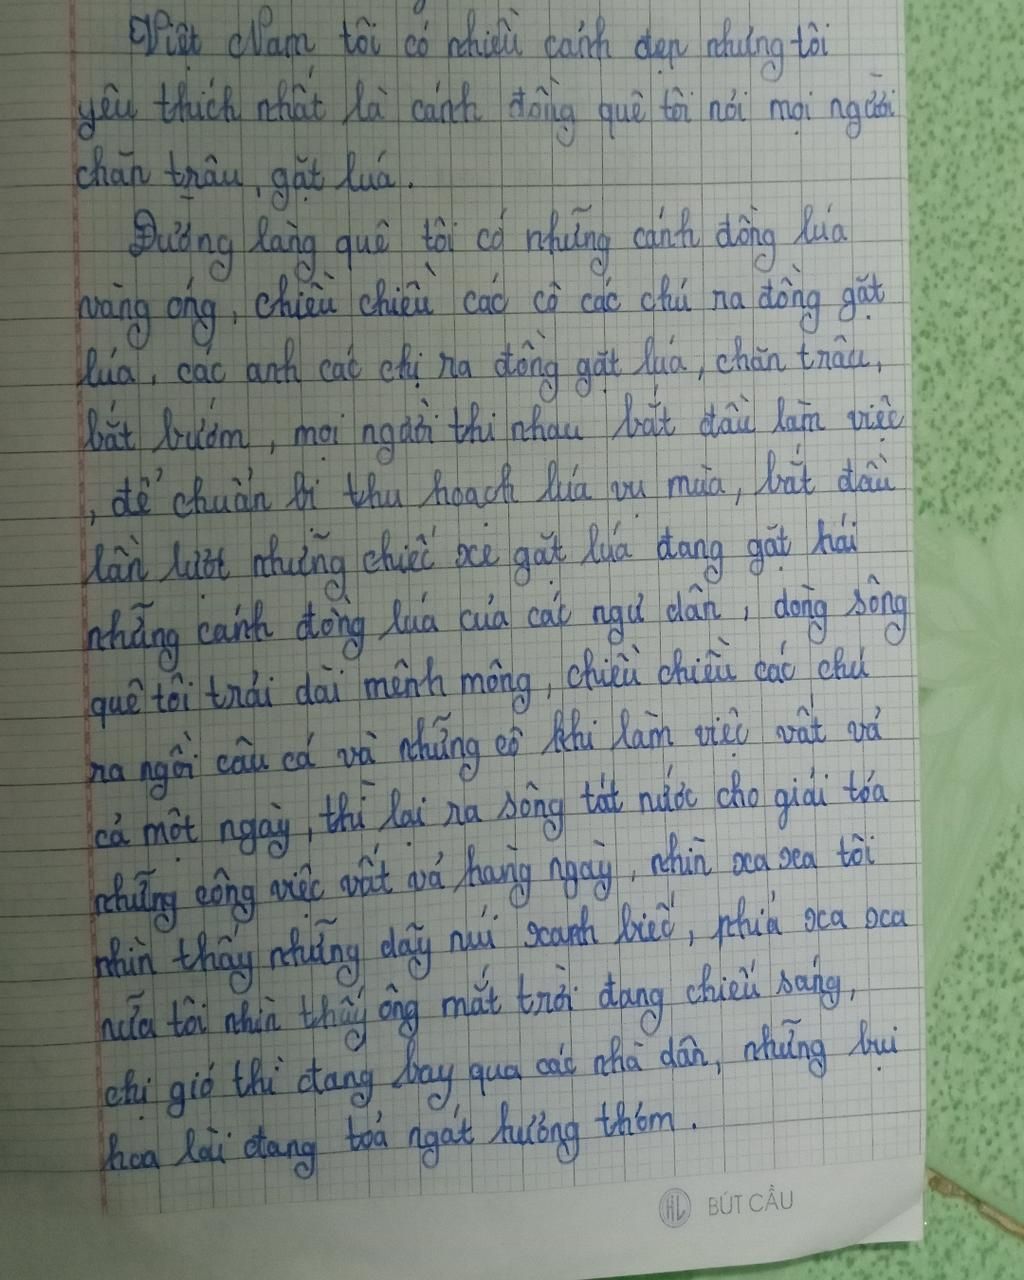 Việt Nam tôi có nhiều cảnh đẹp nhưng tôi
yêu thích nhất là cánh đồng quê tôi nói mọi người
chăn trâu, gặt luá.
Đường làng quê tôi có những cánh đồng lúa
vàng óng, chiều chiều các cô các chú ra đồng gặt
lúa, các anh các chị ra đồng gặt luá, chăn trâu,
bắt bướm, mọi người thi nhau bắt đầu làm việc
, để chuẩn bị thu hoạch lúa vụ mùa, bắt đầu
lần lượt những chiếc xe gặt lúa đang gặt hái
nhẵng cánh đồng luá của các ngư dân, dòng sông
quê tôi trải dài mênh mông, chiều chiều các chú
ra ngồi câu cá và những cô khi làm việc vất vả
cả một ngày, thì lại ra sông tát nước cho giải tỏa
những công việc vất vả hàng ngày, nhìn xa xa tôi
nhìn thấy những dãy núi xanh biếc, phiá xa xa
nữa tôi nhìn thấy ông mặt trời đang chiếu sáng,
chị gió thì đang bay qua các nhà dân, những bụi
hoa lài đang toả ngát hương thơm.
HL BÚT CẦU